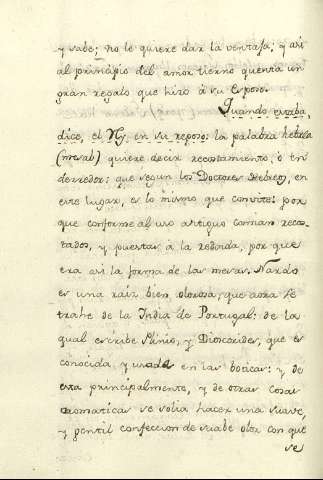 y sabe; no le quiere dar la ventaja, y asi
al principio del amor tierno quenta un
gran regalo que hizo á su Esposo.
Quando estaba,
dice, el Ry. en su reposo: la palabra hebrea
(mesab) quiere decir recostamiento, ó en
derredor: que segun los Doctores Hebreos, en
este lugar, es lo mismo que convite: por
que conforme al uso antiguo comian recos-
tados, y puestas á la redonda, por que
era asi la forma de las mesas. Nardo
es una raiz bien olorosa, que aora se
trahe de la India de Portugal: de la
qual escribe Plinio, y Dioscorides, que es
conocida, y usada en las boticas: y de
esta principalmente, y de otras cosas
aromaticas se solia hacer una suave,
y gentil confeccion de suabe olor con que
se